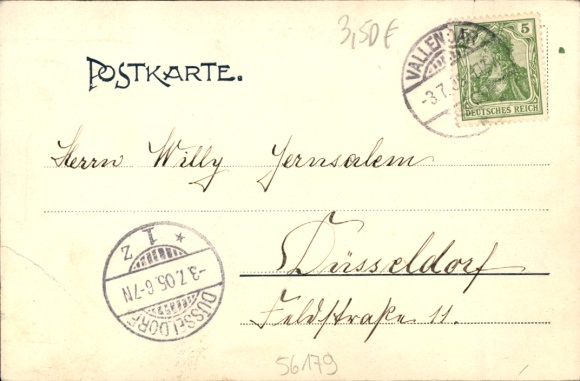 3,50 €
5
DEUTSCHES REICH
VALLENDAR
-3.7.
POSTKARTE.
Herrn Willy Jerusalem
Düsseldorf
Feldstraße 11.
DÜSSELDORF
-3.7.05.6-7N
* 1 z
56179